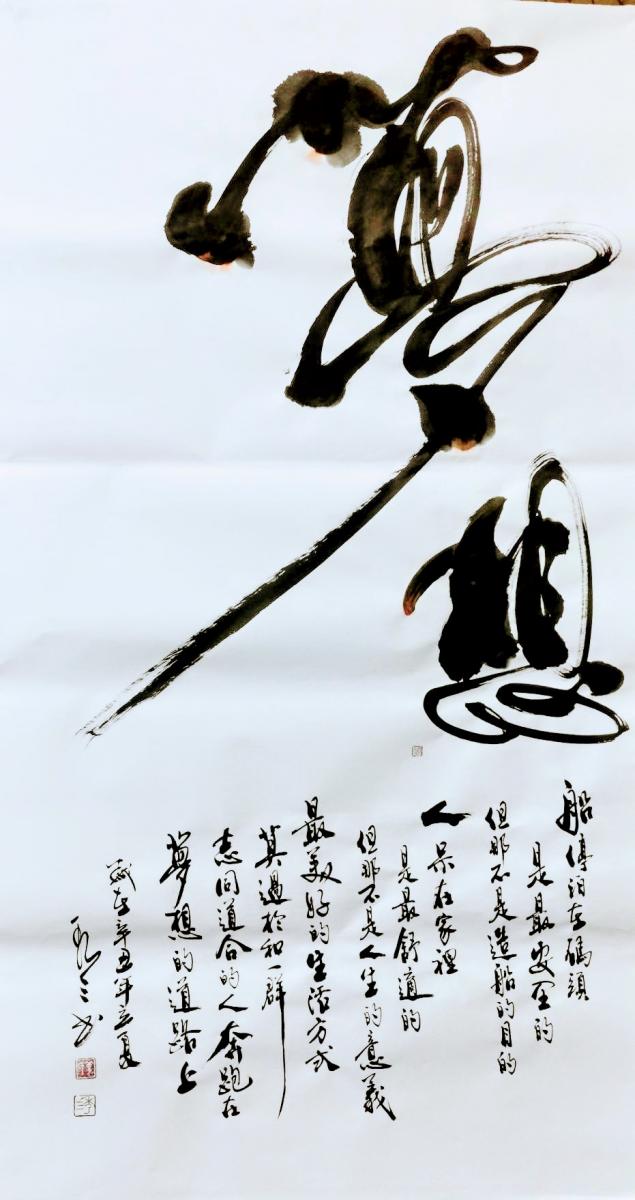 夢想
船停泊在碼頭
是最安全的
但那不是造船的目的
人呆在家裡
是最舒適的
但那不是人生的意義
最美好的生活方式
莫過於和一群
志同道合的人奔跑在
夢想的道路上
歲在辛丑年立夏